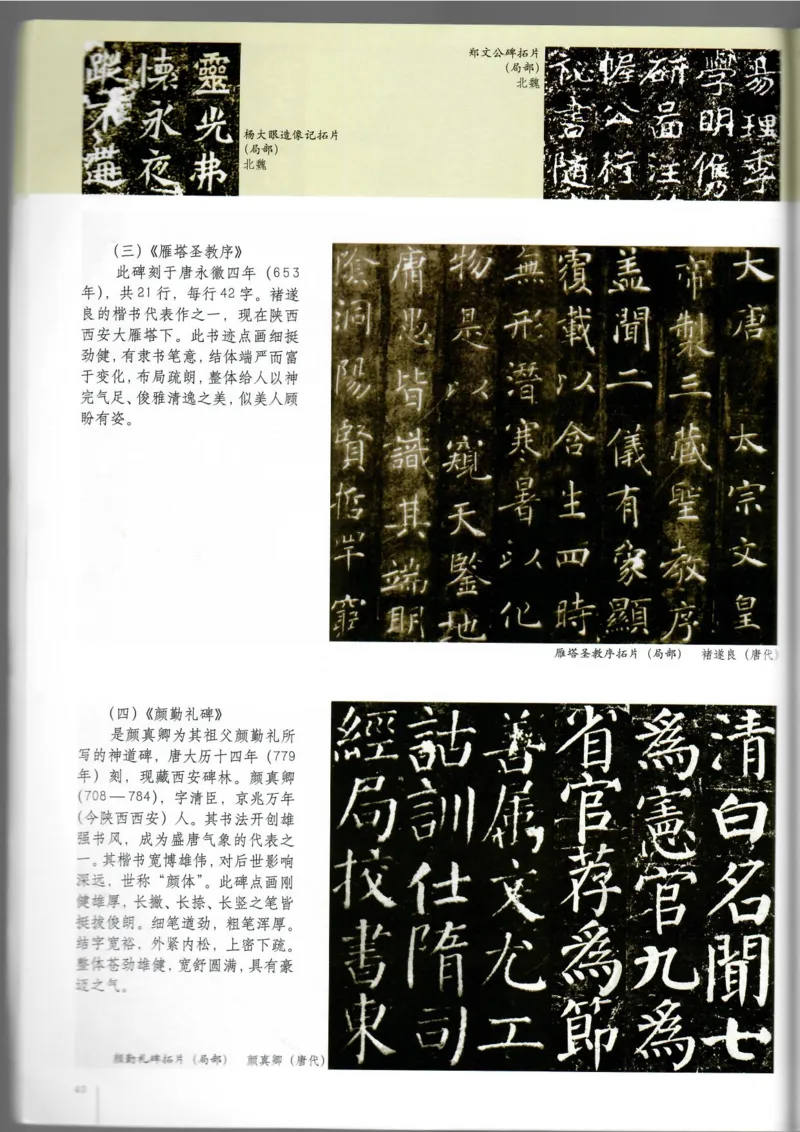 靈光弗
懷永夜
蹤不
杨大眼造像记拓片
(局部)
北魏
郑文公碑拓片
(局部)
北魏
易理季
學明儁
研啚注
幄公行
秘書随
(三)《雁塔圣教序》
此碑刻于唐永徽四年(653
年),共21行,每行42字。褚遂
良的楷书代表作之一,现在陕西
西安大雁塔下。此书迹点画细挺
劲健,有隶书笔意,结体端严而富
于变化,布局疏朗,整体给人以神
完气足、俊雅清逸之美,似美人顾
盼有姿。
大唐太宗文皇
帝製三藏聖教序
盖聞二儀有象顯
覆載以含生四時
無形潜寒暑以化
物是以窺天鑒地
庸愚皆識其端明
陰洞陽賢哲罕窮
雁塔圣教序拓片(局部) 褚遂良(唐代)
(四)《颜勤礼碑》
是颜真卿为其祖父颜勤礼所
写的神道碑,唐大历十四年(779
年)刻,现藏西安碑林。颜真卿
(708—784),字清臣,京兆万年
(今陕西西安)人。其书法开创雄
强书风,成为盛唐气象的代表之
一。其楷书宽博雄伟,对后世影响
深远,世称“颜体”。此碑点画刚
健雄厚,长撇、长捺、长竖之笔皆
挺拔俊朗。细笔遒劲,粗笔浑厚。
结字宽裕,外紧内松,上密下疏。
整体苍劲雄健,宽舒圆满,具有豪
迈之气。
清白名聞七
為憲官九為
省官荐為節
善屬文尤工
詁訓仕隋司
經局挍書東
颜勤礼碑拓片(局部) 颜真卿(唐代)
40